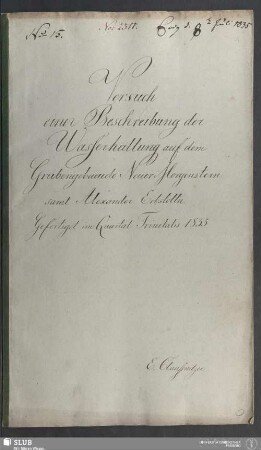 No. 15.
No. 2317.
8 1835
Versuch
einer Beschreibung der
Wasserhaltung auf dem
Grubengebaeude Neuer Morgenstern
samt Alexander Erbstolln
Gefertiget im Quartal Trinitatis 1835
SLUB